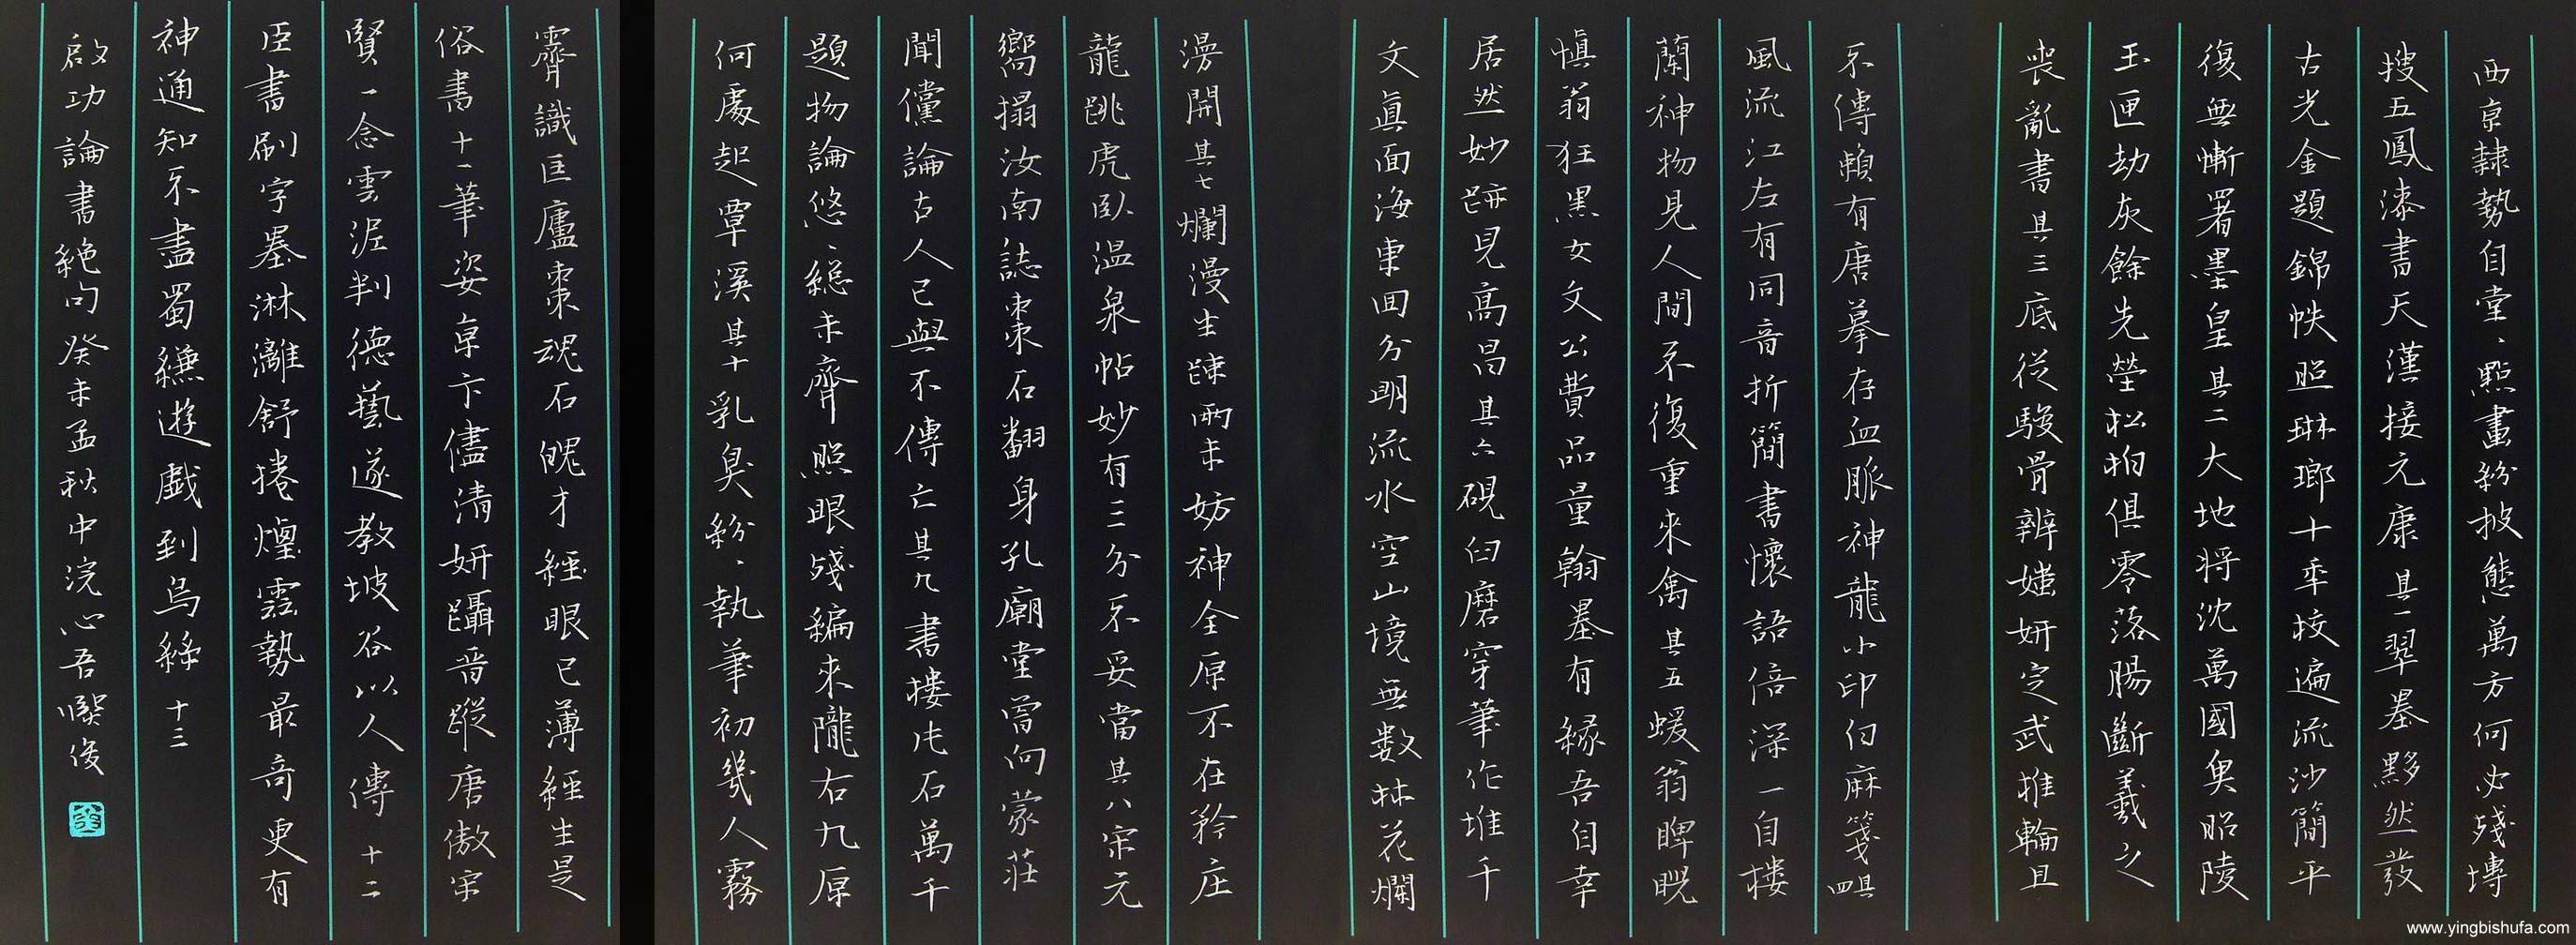 西京隸勢自堂、點畫紛披態萬方何必殘塼
搜五鳳漆書天漢接元康其一翠墨黟然發
古光金題錦帙照琳瑯十年校遍流沙簡平
復無慚署墨皇其二大地將沈萬國魚昭陵
玉匣劫灰餘先塋松柏俱零落腸斷羲之
喪亂書其三底從駿骨辨媸妍定武推輪且
不傳賴有唐摹存血脈神龍小印白麻箋其四
風流江左有同音折簡書懷語倍深一自樓
蘭神物見人間不復重來禽其五蝯翁睥睨
慎翁狂黑女文公費品量翰墨有緣吾自幸
居然妙跡見高昌其六硯臼磨穿筆作堆千
文真面海東回分明流水空山境無數林花爛
漫開其七爛漫生疎兩未妨神全原不在矜庄
龍跳虎臥溫泉帖妙有三分不妥當其八宋元
嚮搨汝南誌棗石翻身孔廟堂曾向蒙莊
聞儻論古人已與不傳亡其九書樓片石萬千
題物論悠、總未齊照眼殘編來隴右九原
何處起覃溪其十乳臭紛、執筆初幾人霧
霽識匡廬棗魂石魄才經眼已薄經生是
俗書十一筆姿京卞儘清妍躡晉蹤唐傲宋
賢一念雲泥判德藝遂教坡谷以人傳十二
臣書刷字墨淋灕舒捲煙雲勢最奇更有
神通知不盡蜀縑遊戲到烏絲十三
啟功論書絕句癸未孟秋中浣心吾俊
www.yingbishufa.com